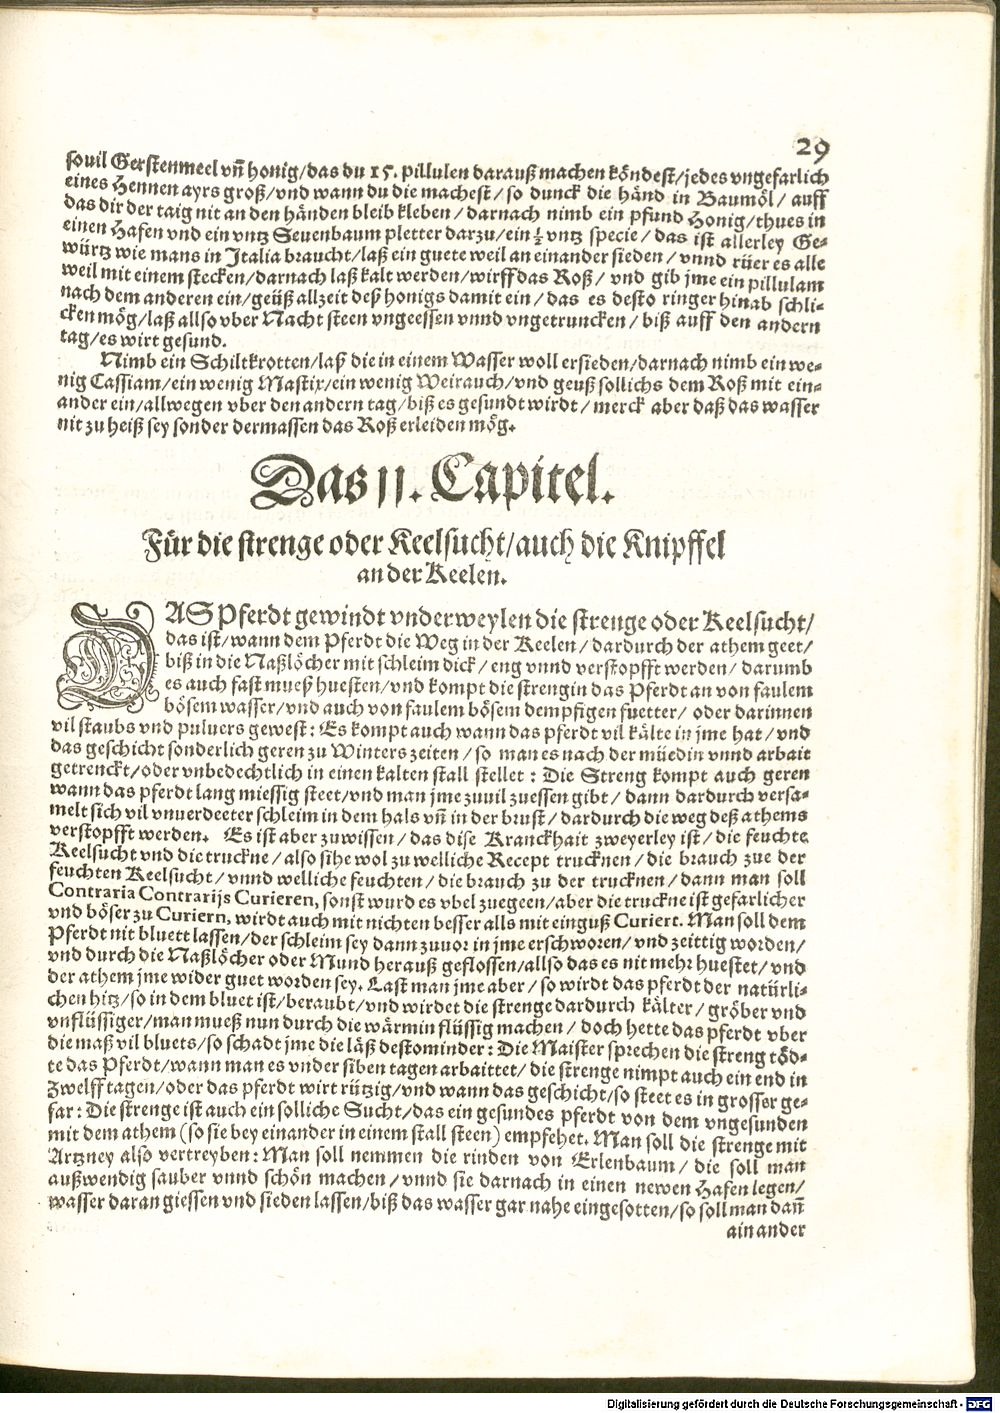 29
souil Gerstenmeel vñ honig/das du 15. pillulen darauß machen köndest/jedes vngefarlich
eines Hennen ayrs groß/vnd wann du die machest/ so dunck die händ in Baumöl/ auff
das dir der taig nit an den händen bleib kleben/ darnach nimb ein pfund Honig/thues in
einen Hafen vnd ein vntz Seuenbaum pletter darzu/ein ½ vntz specie/ das ist allerley Ge⸗
würtz wie mans in Italia braucht/laß ein guete weil an einander sieden/ vnnd rüer es alle
weil mit einem stecken/darnach laß kalt werden/wirff das Roß/ vnd gib jme ein pillulam
nach dem anderen ein/geüß allzeit deß honigs damit ein/ das es desto ringer hinab schli⸗
cken mög/laß allso vber Nacht steen vngeessen vnnd vngetruncken/ biß auff den andern
tag/es wirt gesund.
Nimb ein Schiltkrotten/laß die in einem Wasser woll ersieden/darnach nimb ein we⸗
nig Cassiam/ein wenig Mastix/ein wenig Weirauch/vnd geuß sollichs dem Roß mit ein⸗
ander ein/allwegen vber den andern tag/biß es gesundt wirdt/ merck aber daß das wasser
nit zu heiß sey sonder dermassen das Roß erleiden mög.
Das 11. Capitel.
Für die strenge oder Keelsucht/auch die Knipffel
an der Keelen.
DAS Pferdt gewindt vnderweylen die strenge oder Keelsucht/
das ist/wann dem Pferdt die Weg in der Keelen/ dardurch der athem geet/
biß in die Naßlöcher mit schleim dick/ eng vnnd verstopfft werden/ darumb
es auch fast mueß huesten/vnd kompt die streng in das Pferdt an von faulem
bösem wasser/vnd auch von faulem bösem dempfigen fuetter/ oder darinnen
vil staubs vnd puluers gewest: Es kompt auch wann das pferdt vil kälte in jme hat/ vnd
das geschicht sonderlich geren zu Winters zeiten/ so man es nach der müedin vnnd arbait
getrenckt/oder vnbedechtlich in einen kalten stall stellet: Die Streng kompt auch geren
wann das pferdt lang miessig steet/vnd man jme zuuil zuessen gibt/ dann dardurch versa⸗
melt sich vil vnuerdeeter schleim in dem hals vñ in der brust/ dardurch die weg deß athems
verstopfft werden. Es ist aber zuwissen/ das dise Kranckhait zweyerley ist/ die feuchte
Keelsucht vnd die truckne/ also sihe wol zu welliche Recept trucknen/ die brauch zue der
feuchten Keelsucht/ vnnd welliche feuchten/ die brauch zu der trucknen/ dann man soll
Contraria Contrarijs Curieren, sonst wurd es vbel zuegeen/aber die truckne ist gefarlicher
vnd böser zu Curiern, wirdt auch mit nichten besser alls mit einguß Curiert. Man soll dem
Pferdt nit bluett lassen/der schleim sey dann zuuor in jme erschworen/ vnd zeittig worden/
vnd durch die Naßlöcher oder Mund herauß geflossen/allso das es nit mehr huestet/ vnd
der athem jme wider guet worden sey. Last man jme aber/ so wirdt das pferdt der natürli⸗
chen hitz/so in dem bluet ist/beraubt/vnd wirdet die strenge dardurch kälter/ gröber vnd
vnflüssiger/man mueß nun durch die wärmin flüssig machen/ doch hette das pferdt vber
die maß vil bluets/so schadt jme die läß destominder: Die Maister sprechen die streng töd⸗
te das Pferdt/wann man es vnder siben tagen arbaittet/ die strenge nimpt auch ein end in
Zwelff tagen/oder das pferdt wirt rützig/vnd wann das geschicht/so steet es in grosser ge⸗
far: Die strenge ist auch ein solliche Sucht/das ein gesundes pferdt von dem vngesunden
mit dem athem (so sie bey einander in einem stall steen) empfehet. Man soll die strenge mit
Artzney also vertreyben: Man soll nemmen die rinden von Erlenbaum/ die soll man
außwendig sauber vnnd schön machen/ vnnd sie darnach in einen newen Hafen legen/
wasser daran giessen vnd sieden lassen/biß das wasser gar nahe eingesotten/so soll man dañ
ain ander
Digitalisierung gefördert durch die Deutsche Forschungsgemeinschaft - DFG